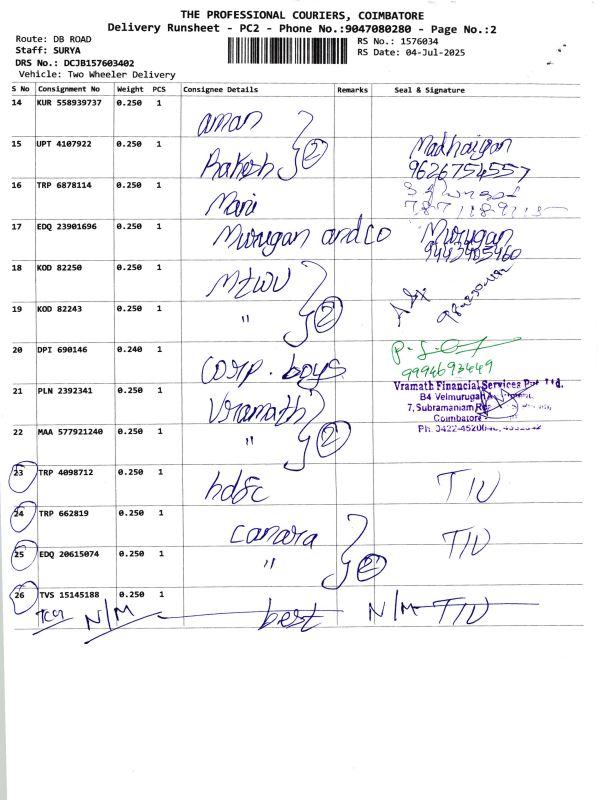 THE PROFESSIONAL COURIERS, COIMBATORE
Delivery Runsheet - PC2 - Phone No.:9047080280 - Page No.:2
Route: DB ROAD
RS No.: 1576034
Staff: SURYA
RS Date: 04-Jul-2025
DRS No.: DCJB157603402
Vehicle: Two Wheeler Delivery
S No Consignment No Weight PCS Consignee Details Remarks Seal & Signature
14 KUR 558939737 0.250 1
aman
15 UPT 4107922 0.250 1
Rakesh 2 Madhaigan
9626754557
16 TRP 6878114 0.250 1
Mani
17 EDQ 23901696 0.250 1
Murugan and co Murugan
9443905460
18 KOD 82250 0.250 1
Mtwu
19 KOD 82243 0.250 1
" 2
20 DPI 690146 0.240 1
corp. boys
9994693449
21 PLN 2392341 0.250 1
Vramath
Vramath Financial Services Pvt Ltd.
B4 Velmurugan
7, Subramaniam
Coimbatore
Ph: 0422-4520
22 MAA 577921240 0.250 1
" 2
23 TRP 4098712 0.250 1
hdfc TIU
24 TRP 662819 0.250 1
canara TIU
25 EDQ 20615074 0.250 1
" 2
26 TVS 15145188 0.250 1
N/M best N/M TIU